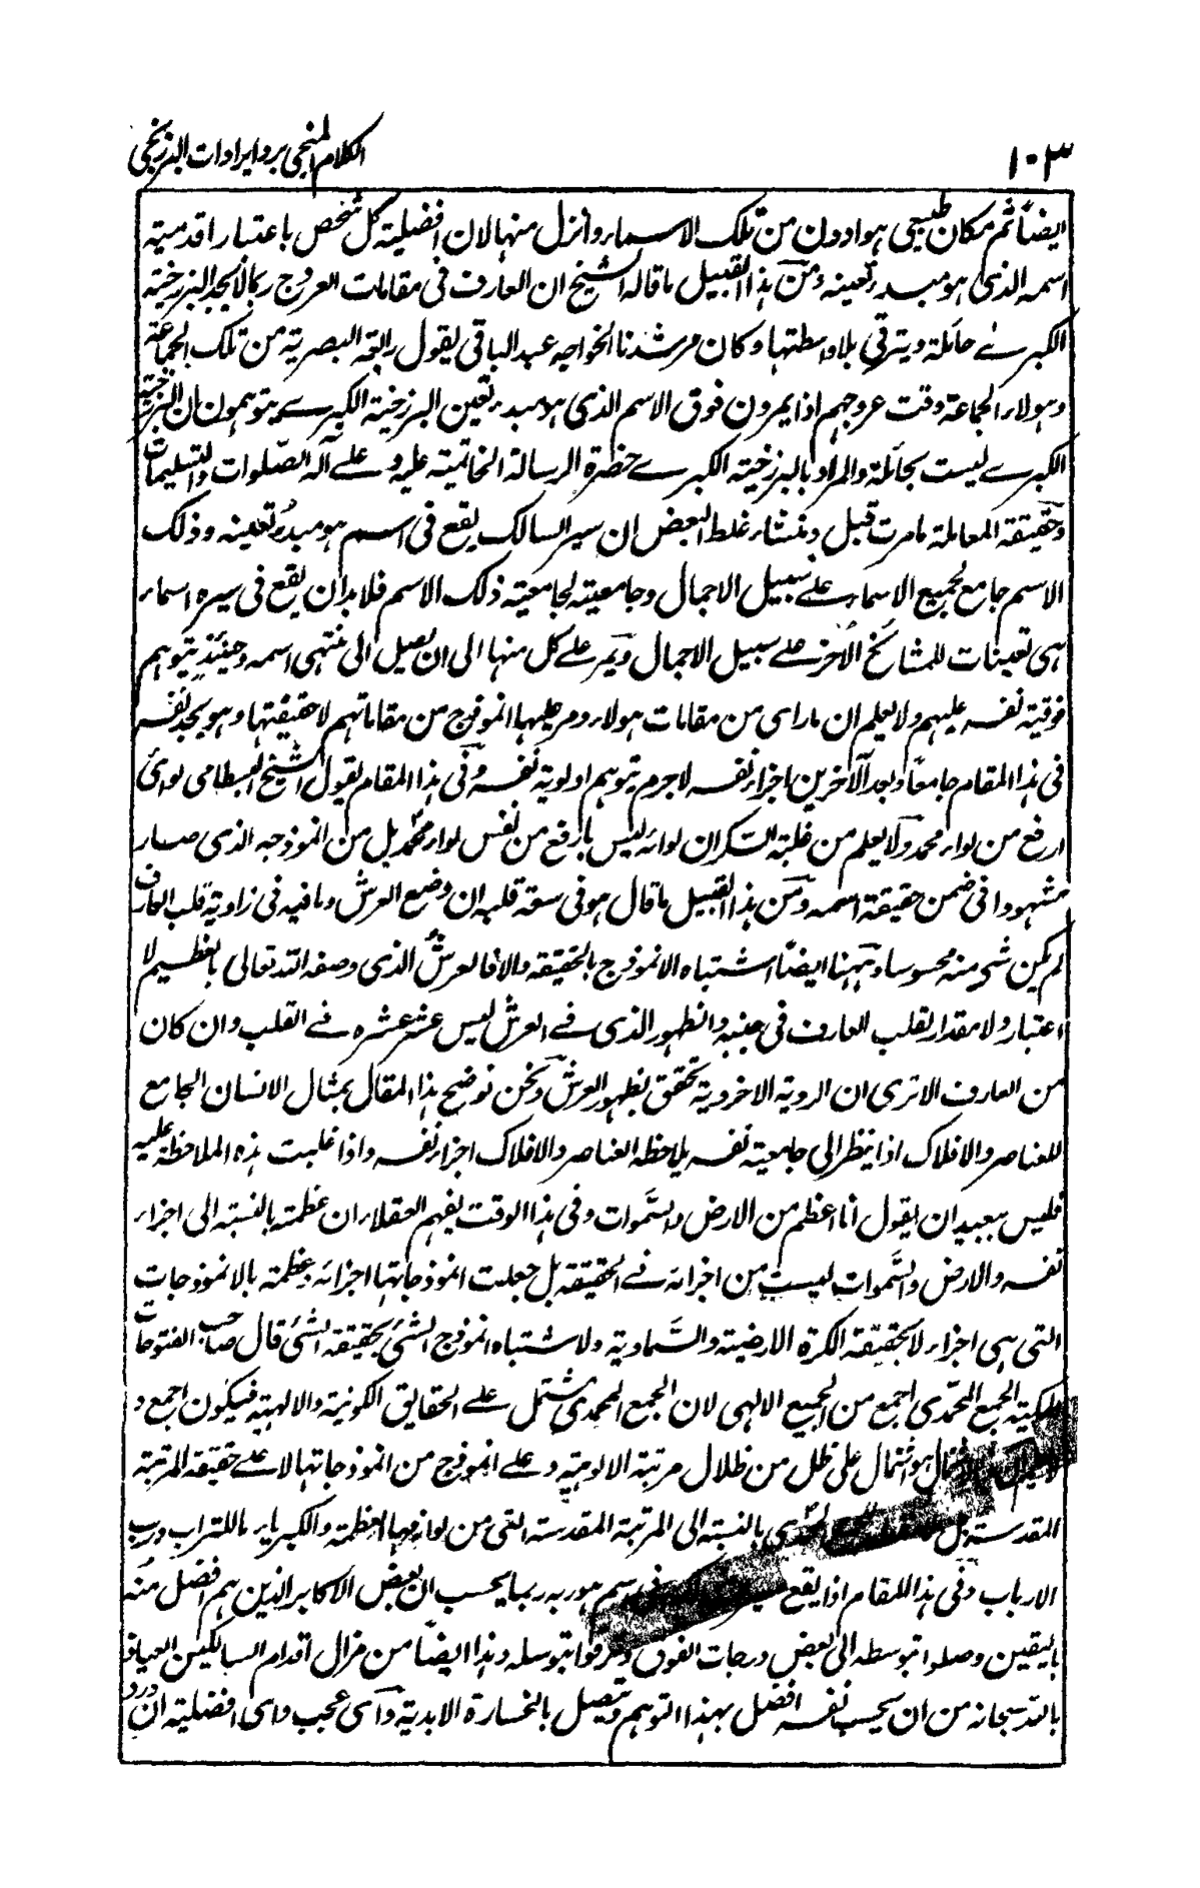 ١٠٣
الكلام المنجى برد ايرادات البرزنجى
ايضاً ثم مكان طبيعى هو ادون من تلك الاسماء وانزل منها لان افضلية كل شخص باعتبار اقدمية
اسمه الذى هو مبدء تعينه ومن هذا القبيل ما قاله الشيخ ان العارف فى مقامات العروج ربما لا يجد البرزخية
الكبرے حائلة ويترقى بلا واسطتها وكان مرشدنا الخواجه عبد الباقى يقول رابعة البصرية من تلك الجماعة
وهولاء الجماعة وقت عروجهم اذا يمرون فوق الاسم الذى هو مبدء تعين البرزخية الكبرے يتوهمون ان البرزخية
الكبرے ليست بحائلة والمراد بالبرزخية الكبرے حضرة الرسالة الخاتمية عليه وعلے آله الصلوات والتسليمات
وحقيقة المعاملة ما مرت قبل ومنشاء غلط البعض ان سير السالك يقع فى اسم هو مبدء تعينه وذلك
الاسم جامع لجميع الاسماء علے سبيل الاجمال وجامعيته لجامعية ذلك الاسم فلابد ان يقع فى سيره اسماء
هى تعينات للمشائخ الاخر علے سبيل الاجمال ويمر علے كل منها الى ان يصل الى منتهى اسمه وحينئذ يتوهم
فوقية نفسه عليهم ولا يعلم ان ما راى من مقامات هولاء ومر عليها انموذج من مقاماتهم لا حقيقتها وهو يجد نفسه
فى هذا المقام جامعا ويعد الآخرين اجزاء نفسه لا جرم يتوهم اولوية نفسه وفى هذا المقام يقول الشيخ البسطامى لوائى
ارفع من لواء محمد ولا يعلم من غلبة السكر ان لوائه ليس بارفع من نفس لواء محمد بل من انموذجه الذى صار
مشهودا فى ضمن حقيقة اسمه ومن هذا القبيل ما قال هو فى سعة قلبه ان وضع العرش وما فيه فى زاوية قلب العارف
لم يكن شئ منه محسوسا وههنا ايضا اشتباه الانموذج بالحقيقة والا فالعرش الذى وصفه الله تعالى بالعظيم لا
اعتبار ولا مقدار لقلب العارف فى جنبه والظهور الذى فے العرش ليس عشر عشره فے القلب وان كان
من العارف الا ترى ان الروية الاخروية تحقق بظهور العرش ونحن نوضح هذا المقال بمثال الانسان الجامع
للعناصر والافلاك اذا ينظر الى جامعية نفسه يلاحظه العناصر والافلاك اجزاء نفسه واذا غلبت هذه الملاحظة عليه
فليس ببعيد ان يقول انا اعظم من الارض والسموات وفى هذا الوقت يفهم العقلاء ان عظمته بالنسبة الى اجزاء
نفسه والارض والسموات ليست من اجزائه فے الحقيقة بل جعلت انموذجاتها اجزائه وعظمته بالانموذجات
التى هى اجزاء لا بحقيقة الكرة الارضية والسماوية ولاشتباه انموذج الشئ بحقيقة الشئ قال صاحب الفتوحات
المكية الجمع المحمدى اجمع من الجمع الالهى لان الجمع المحمدى مشتمل علے الحقايق الكونية والالهية فيكون اجمع و
الاشتمال هو اشتمال على ظل من ظلال مرتبة الالوهية وعلے انموذج من انموذجاتها لا علے حقيقة المرتبة
المقدسة بل بالنسبة الى المرتبة المقدسة التى من لوازمها العظمة والكبرياء ما للتراب ورب
الارباب وفى هذا المقام اذا يقع فى اسم هو ربه ربما يحسب ان بعض الاكابر الذين هم افضل منه
باليقين وصلوا بتوسطه الى بعض درجات الفوق وعرجوا بتوسله وهذا ايضاً من مزال اقدام السالكين العياذ
بالله سبحانه من ان يحسب نفسه افضل بهذا التوهم ويتصل بالخسارة الابدية واى عجب واى افضلية ان ورد